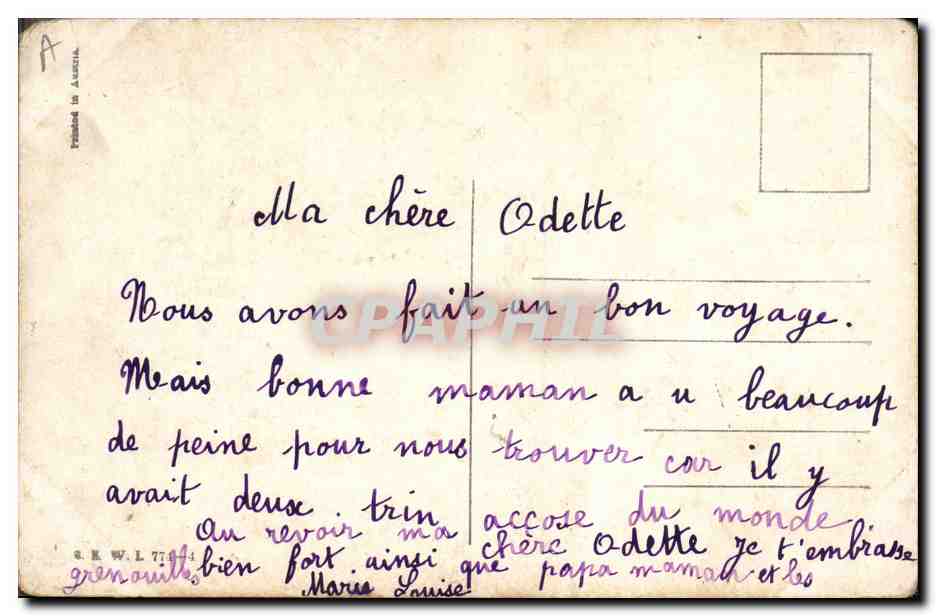 A
Printed in Austria.
Ma chère Odette
Nous avons fait un bon voyage.
CPAPHIL
Mais bonne maman a u beaucoup
de peine pour nous trouver car il y
avait deux trin accose du monde
Au revoir ma chère Odette Je t'embrasse
bien fort ainsi que papa maman et les
grenouilles
Marie Louise
W. I.